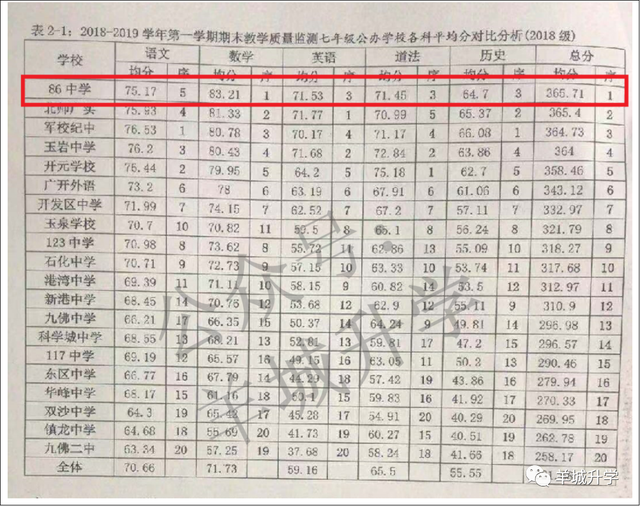 表 2-1：2018-2019 学年第一学期期末教学质量监测七年级公办学校各科平均分对比分析(2018 级)
学校 语文 数学 英语 道法 历史 总分
均分 序 均分 序 均分 序 均分 序 均分 序 均分 序
86 中学 75.17 5 83.21 1 71.53 3 71.45 3 64.7 3 365.71 1
北师广实 75.93 4 81.33 2 71.77 1 70.99 5 65.37 2 365.4 2
军校纪中 76.53 1 80.78 3 70.17 4 71.17 4 66.08 1 364.73 3
玉岩中学 76.2 3 80.43 4 71.68 2 72.84 2 63.86 4 364 4
开元学校 75.44 2 79.95 5 64.2 5 75.18 1 62.7 5 358.46 5
广开外语 73.2 6 78 6 63.19 6 67.91 6 61.06 6 343.12 6
开发区中学 71.99 7 74.15 7 62.52 7 67.2 7 57.11 7 332.97 7
玉泉学校 70.7 10 70.82 11 59.5 8 65.1 8 56.24 8 321.79 8
123 中学 70.98 8 73.62 8 55.72 11 62.86 13 55.09 10 318.27 9
石化中学 70.71 9 72.73 9 57.15 10 63.33 10 53.74 11 317.68 10
港湾中学 69.39 11 71.11 10 58.15 9 60.82 14 53.5 12 312.97 11
新港中学 68.45 14 70.76 12 53.68 12 62.9 12 55.11 9 310.9 12
九佛中学 66.21 17 66.35 15 50.37 14 64.24 9 49.81 14 296.98 13
科学城中学 68.55 13 68.21 13 52.81 13 59.81 17 47.2 15 296.57 14
117 中学 69.19 12 65.57 16 49.15 16 63.05 11 50.2 13 290.46 15
东区中学 66.77 16 67.79 14 44.29 18 57.42 19 43.86 16 279.94 16
华峰中学 68.17 15 64.16 18 15 59.83 16 41.92 17 270.33 17
双沙中学 64.3 19 65.42 17 45.28 17 54.91 20 40.29 20 269.95 18
镇龙中学 64.68 18 55.69 20 41.73 19 60.27 15 40.51 19 262.78 19
九佛二中 63.34 20 57.25 19 37.68 20 58.24 18 41.66 18 258.17 20
全体 70.66 71.73 59.16 65.5 55.55
公众号：
羊城升学
羊城升学